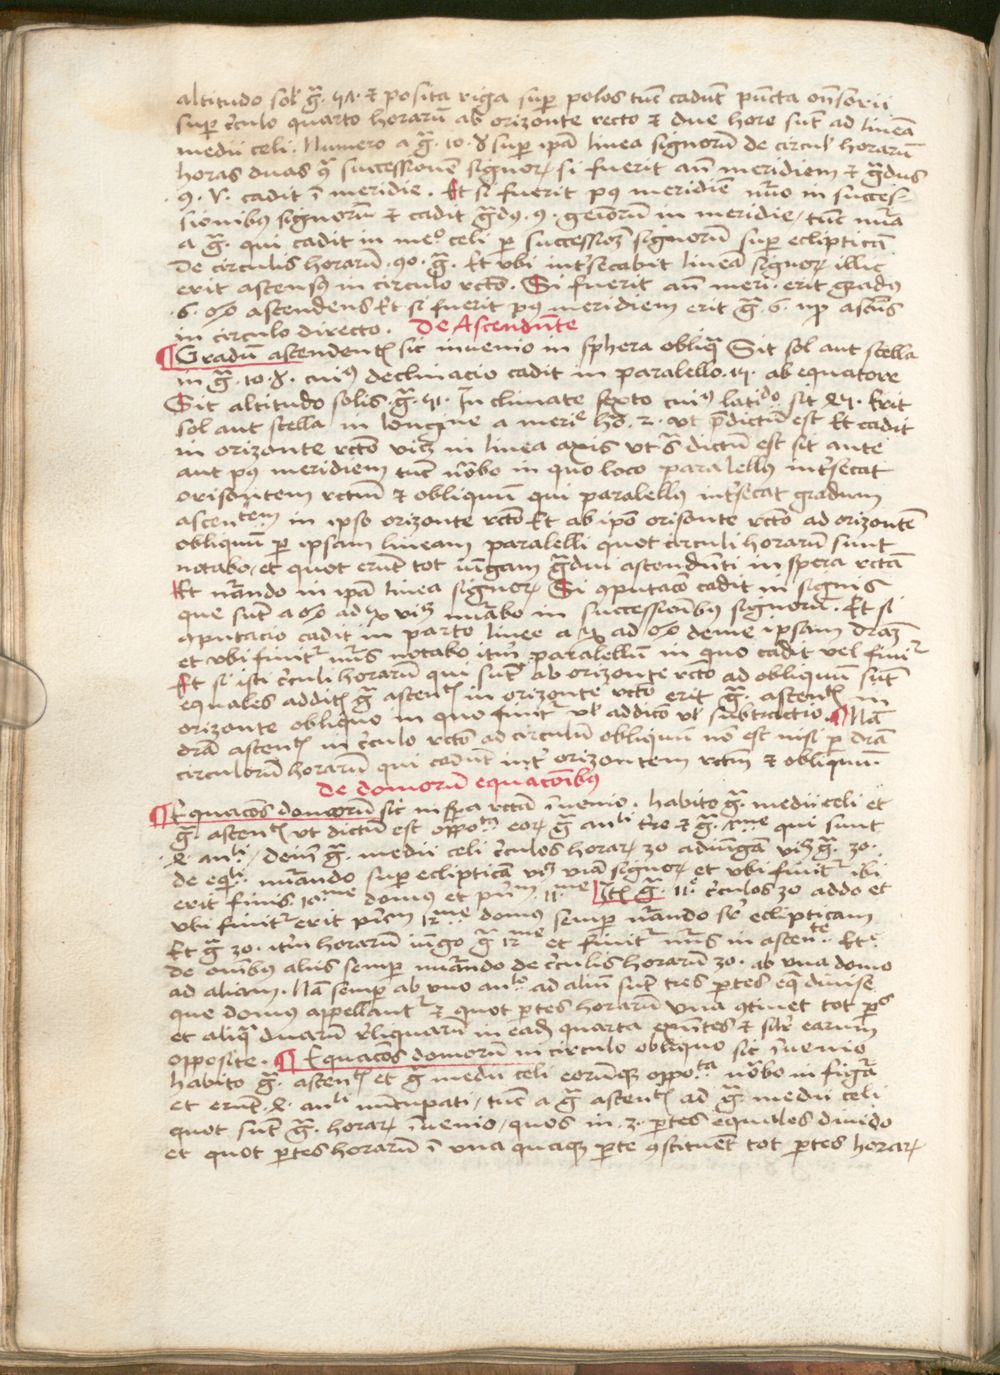 altitudo sol̄ ḡ. 51. et posita riga sup̄ polos tūc cadūt pūcta ōn̄sorii
sup̄ c̓culo quarto horarū ab orizonte recto et due hore sūt ad lineā
medii celi. Numero a ḡ. 10. ♉ sup̄ ip̄ā linea signorū de circul̓ horarū
horas duas ꝗ̄ successionē signoꝝ si fuerit an̄ meridiem et ḡdus
.9. cadit ī meridie. Et si fuerit pꝰ meridiē in succes-
sionibꝰ signorū et cadit ḡdꝰ .9. geīorū in meridie / tūc nūa
a ḡ. qui cadit in meº. celi p̄ successiōꝫ signorū sup̄ eclipticā
de circulis horarū .90. ḡ. Et vbi int̓secabit lineā signoꝝ illic
erit ascensꝰ in circulo rc̄to. Si fuerit an̄ meri. erit gradꝰ
.6. ♌ ascendens Et si fuerit pꝰ meridiem erit ḡ. 6. ♍ ascn̄s
in circulo directo. De Ascendn̄te
¶ Gradū ascendentꝭ sic invenio in sphera obliq̄ Sit sol aut stella
in ḡ. 10. ♉. cuiꝰ declinacio cadit in paralello ab equatore
Sit altitudo solis. ḡ. 51. In climate sexto cuiꝰ latiᵈº sit Erit
sol aut stella in longine a meriᵉ hō. 2. vt p̄dictū est Et cadit
in orizonte rc̄to viꝫ in linea axis vt s̄ dictū est sit ante
aut pꝰ meridiem tūc nōbo in quo loco paralellꝰ int̓secat
orisontem rc̄tum et obliquū qui paralellꝰ int̓secat gradum
ascenᵗᵉᵐ in ipso orizonte rc̄to Et ab ip̄o orisonte rc̄to ad orizontē
obliquū p̄ ipsam lineam paralelli quot circuli horarū sunt
notabo / et quot erūt tot iūgam ḡdui ascendn̄ti in spera rc̄tā
Et nūando in ip̄ā linea signoꝝ Si ꝯputacō cadit in signis
que sūt a ♋ ad ♑ viꝫ nūabo in successionibꝰ signorū. Et si
ꝯputacio cadit in parto linee a ♑ ad ♋ deme ipsam dr̄aꝫ
et vbi finitᷣ nūs notabo it̄m paralellum in quo cadit vel finiᷣ
Et si isti c̓culi horarū qui sūt ab orizonte rc̄to ad obliquū sūt
equales additꝭ ḡ ascentꝭ in orizonte rc̄to erit ḡ. ascentꝭ in
orizonte obliquo in quo finitᷣ vl̓ addicō vl̓ subtractio. ¶ Nā
dr̄ā ascentꝭ in c̓culo rc̄to ad circulū obliquū nō est nisi p̄ dr̄ā
circulorū horarū qui cadūt int̓ orizontem rc̄tum et obliquū.
De domorū equacōibꝰ
¶ Equacōs domorū sic in sp̄a rc̄tā īuenio. habito ḡ. medii celi et
ḡ. ascentꝭ vt dictū est oppoᵗᵐ eoꝝ ḡ anˡⁱ t̓re et ḡ. qui sunt
.4. anˡⁱ / dein̄ ḡ. medii celi c̓culos horaꝝ 30 adiūgā viꝫ ḡ. 30.
de eqˡⁱ. nūando sup̄ eclipticam viā signoꝝ et vbi finitᷣ ibi
erit finis 10ᵐᵉ domus et pn̄ᵐ 11ᵐᵉ ḡ. 11ᵉ c̓culos 30 addo et
vbi finitᷣ erit pn̄m 12ᵐᵉ domꝰ semp̄ nūando sr̄ eclipticam
Et ḡ 30. it̄m horarū iūgo ḡ 12ᵐᵉ et finitᷣ nūs in ascenᵗᵉ. Et
de oībꝰ aliis semp̄ nūando de c̓culis horarū 30. ab vna domo
ad aliam. Nā semp̄ ab vno anˡº. ad aliū sūt tres p̄tes eq̄ divise
que domꝰ appellantᷣ et quot p̄tes horarū vna ꝯtinet tot p̄ˢ
et aliq̄ duarū r̓liquarū in eadꝫ quarta en̄tes et silr̄ earum
opposite. ¶ Equacōs domorū in circulo obliquo sic īuenio
habito ḡ. ascentꝭ et ḡ medii celi eorūqꝫ oppoᵗᵃ nōbo in figā
et erūt .4. anˡⁱ nūcupati / tūc a ḡ ascentꝭ ad ḡ. medii celi
quot sūt ḡ. horaꝝ īuenio / quos in .3. p̄tes equales divido
et quot p̄tes horarū ī vna quaqꝫ p̄te ꝯstituēt tot p̄tes horaꝝ